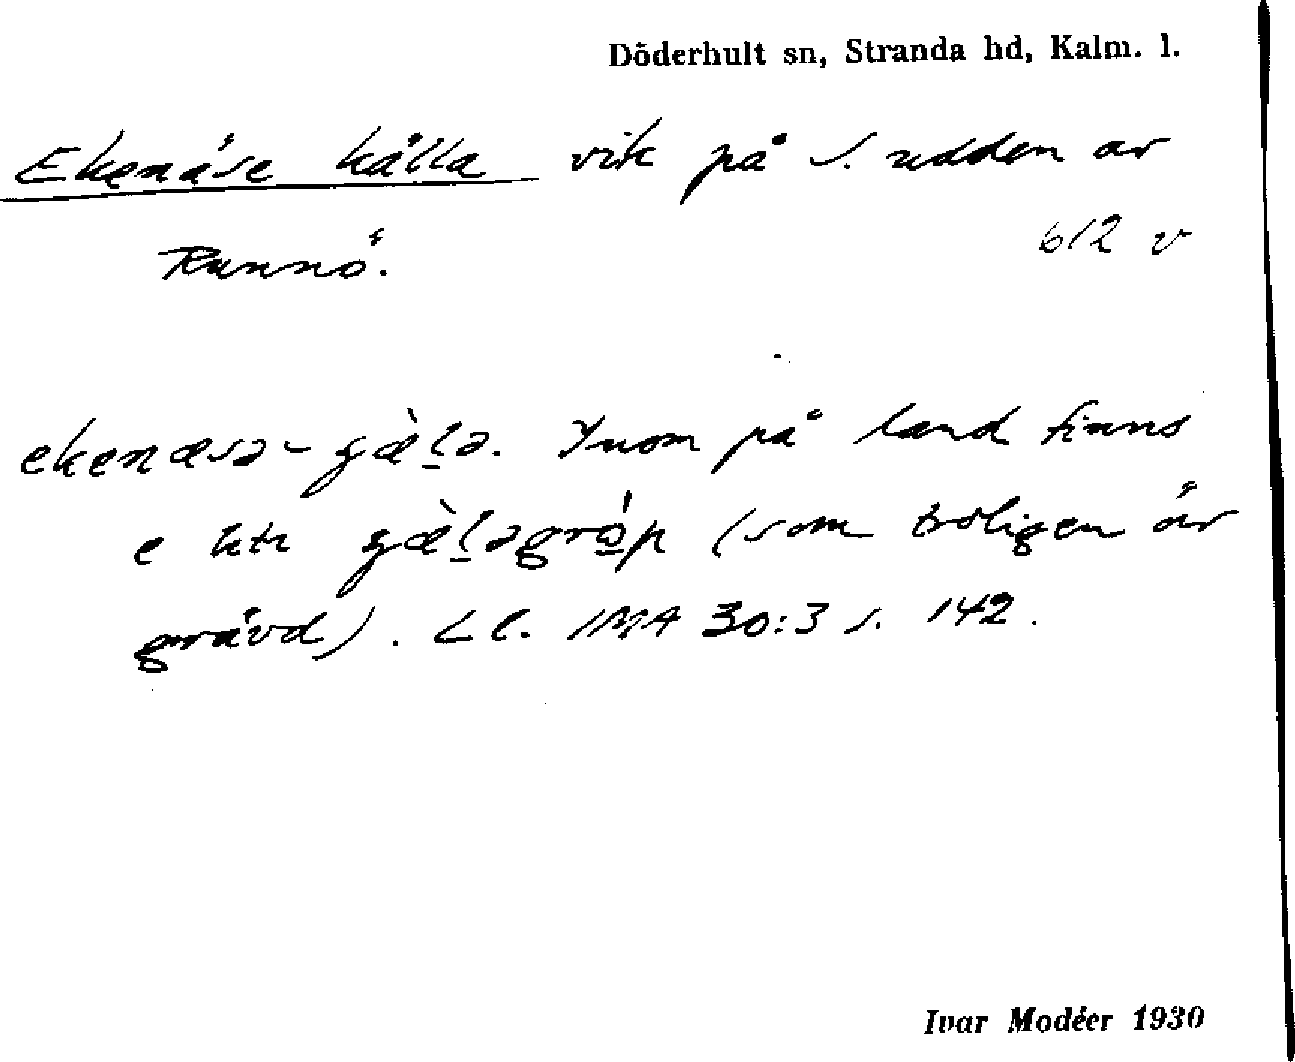 Döderhult sn, Stranda hd, Kalm. l.
Ekenäse källa vik på S. udden av
Runnö.
612 v
ekenæsə- gæ̀l̲ə. Inom på land finns
e litn gæ̀l̲əgrò̲p (som troligen är
grävd). Ll. IMA 30:3 s. 142.
Ivar Modéer 1930